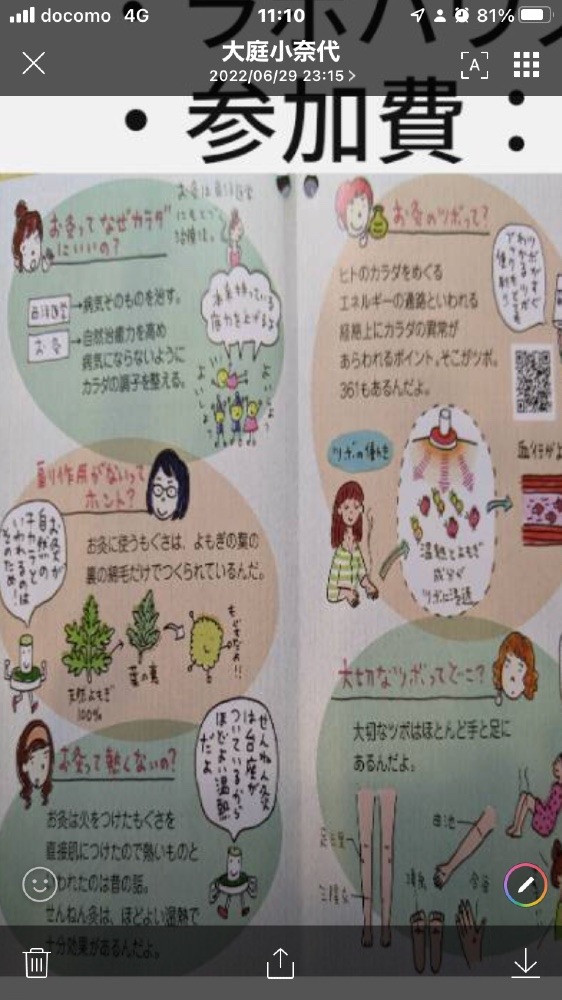 docomo 4G
11:10
81%
大庭小奈代
2022/06/29 23:15
A
・参加費：
お灸ってなぜカラダ
にいいの？
お灸は東洋医学
にもとづく
治療法。
西洋医学→病気そのものを治す。
お灸→自然治癒力を高め
病気にならないように
カラダの調子を整える。
本来持っている
底力を上げるよ
よいしょ
よいしょ
副作用がないって
ホント？
お灸が
自然の
チカラと
いわれるのは
そのため！
お灸に使うもぐさは、よもぎの葉の
裏の綿毛だけでつくられているんだ。
天然よもぎ
100%
葉の裏
もぐさだよ!!
お灸って熱くないの？
せんねん灸
は台座が
ついているから
ほどよい温熱
だよ
お灸は火をつけたもぐさを
直接肌につけたので熱いものと
われたのは昔の話。
せんねん灸は、ほどよい温熱で
十分効果があるんだよ。
お灸のツボって？
ヒトのカラダをめぐる
エネルギーの通路といわれる
経絡上にカラダの異常が
あらわれるポイント。そこがツボ。
361もあるんだよ。
ツボがすぐ
わかるツボ
アプリもどうぞ
便利！
ツボの働き
温熱とよもぎ
成分が
ツボに浸透
血行がよ
大切なツボってどーこ？
大切なツボはほとんど手と足に
あるんだよ。
足三里
三陰交
曲池
湧泉
合谷